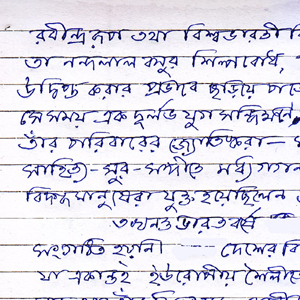 রবীন্দ্ররূপ তথা বিশ্বভারতী
তা নন্দলাল বসুর শিল্পবোধ,
উদ্দিষ্ট করার প্রভাবে ছড়িয়ে
সে সময় এক দুর্লভ যুগ সন্ধিক্ষণ
তাঁর পরিবারের জ্যোতিষ্করা –
সাহিত্য-সুর-সঙ্গীতে মধ্য গগন
বিদগ্ধ মানুষেরা যুক্ত হয়েছিলেন
তখনও ভারতবর্ষে
সংগঠিত হয়নী দেশের বি
যা একান্তই ইউরোপীয় শৈলীতে